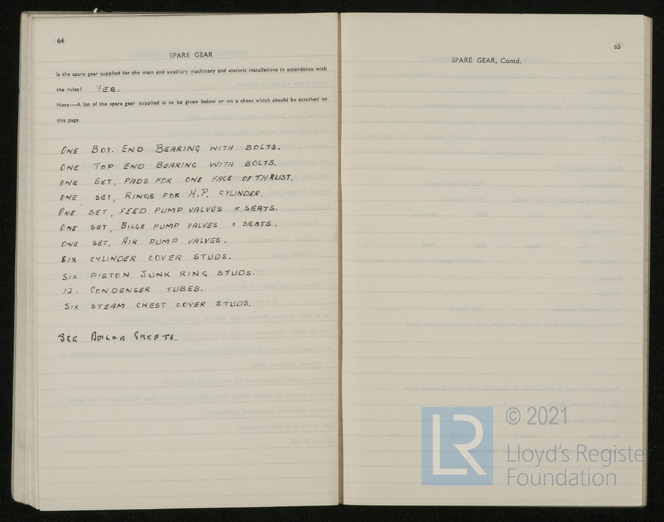 64
SPARE GEAR
Is the spare gear supplied for the main and auxiliary machinery and electric installations in accordance with
the rules? YES.
Note:—A list of the spare gear supplied is to be given below or on a sheet which should be attached to
this page
ONE BOT. END BEARING WITH BOLTS.
ONE TOP END BEARING WITH BOLTS.
ONE SET, PADS FOR ONE FACE OF THRUST.
ONE SET, RINGS FOR H.P. CYLINDER.
ONE SET, FEED PUMP VALVES & SEATS.
ONE SET, BILGE PUMP VALVES & SEATS.
ONE SET, AIR PUMP VALVES.
SIX CYLINDER COVER STUDS.
SIX PISTON JUNK RING STUDS.
12. CONDENSER TUBES.
SIX STEAM CHEST COVER STUDS.
SEE BOILER SHEETS.
65
SPARE GEAR, Contd.
LR
© 2021
Lloyd's Register
Foundation